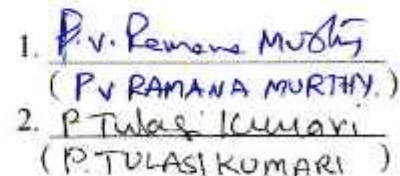 1. P.V. Ramana Murthy
(PV RAMANA MURTHY.)
2. P Tulasi Kumari
(P. TULASI KUMARI )